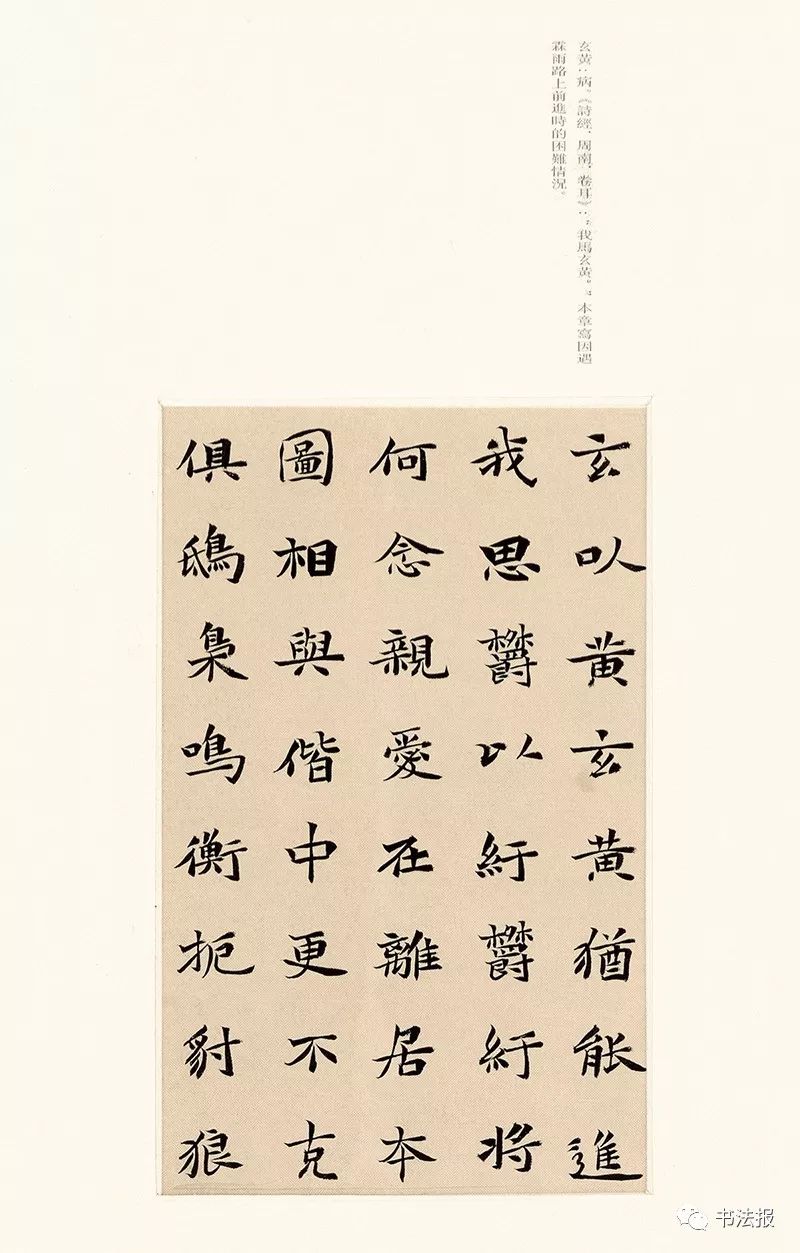 玄黃：病。《詩經．周南．卷耳》：“我馬玄黃。”本章寫因遇
霖雨路上前進時的困難情況。
玄以黄玄黄猶能進
我思欝以紆欝紆將
何念親愛在離居本
圖相與偕中更不克
俱鴟梟鳴衡扼豺狼
书法报